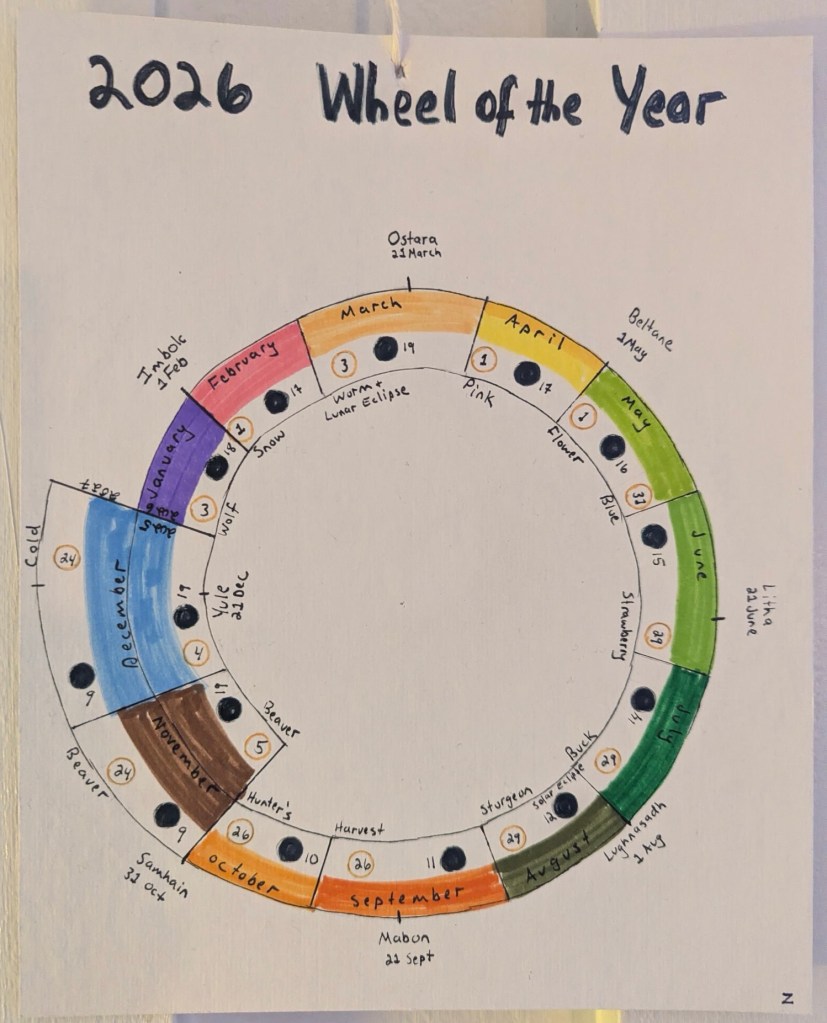 2026 Wheel of the Year
Ostara
21 March
March
3
19
Worm +
Lunar Eclipse
April
1
17
Pink
Beltane
1 May
May
1
16
31
Flower
Blue
June
15
29
Strawberry
Litha
21 June
July
14
29
Buck
Lughnasadh
1 Aug
August
Solar Eclipse
12
29
Sturgeon
September
11
26
Harvest
Mabon
22 Sept
October
10
26
Hunter's
Samhain
31 Oct
November
9
24
Beaver
19
5
Beaver
December
9
24
Cold
19
4
Yule
21 Dec
2027
2025
2026
January
3
18
Wolf
Imbolc
1 Feb
February
1
17
Snow
N